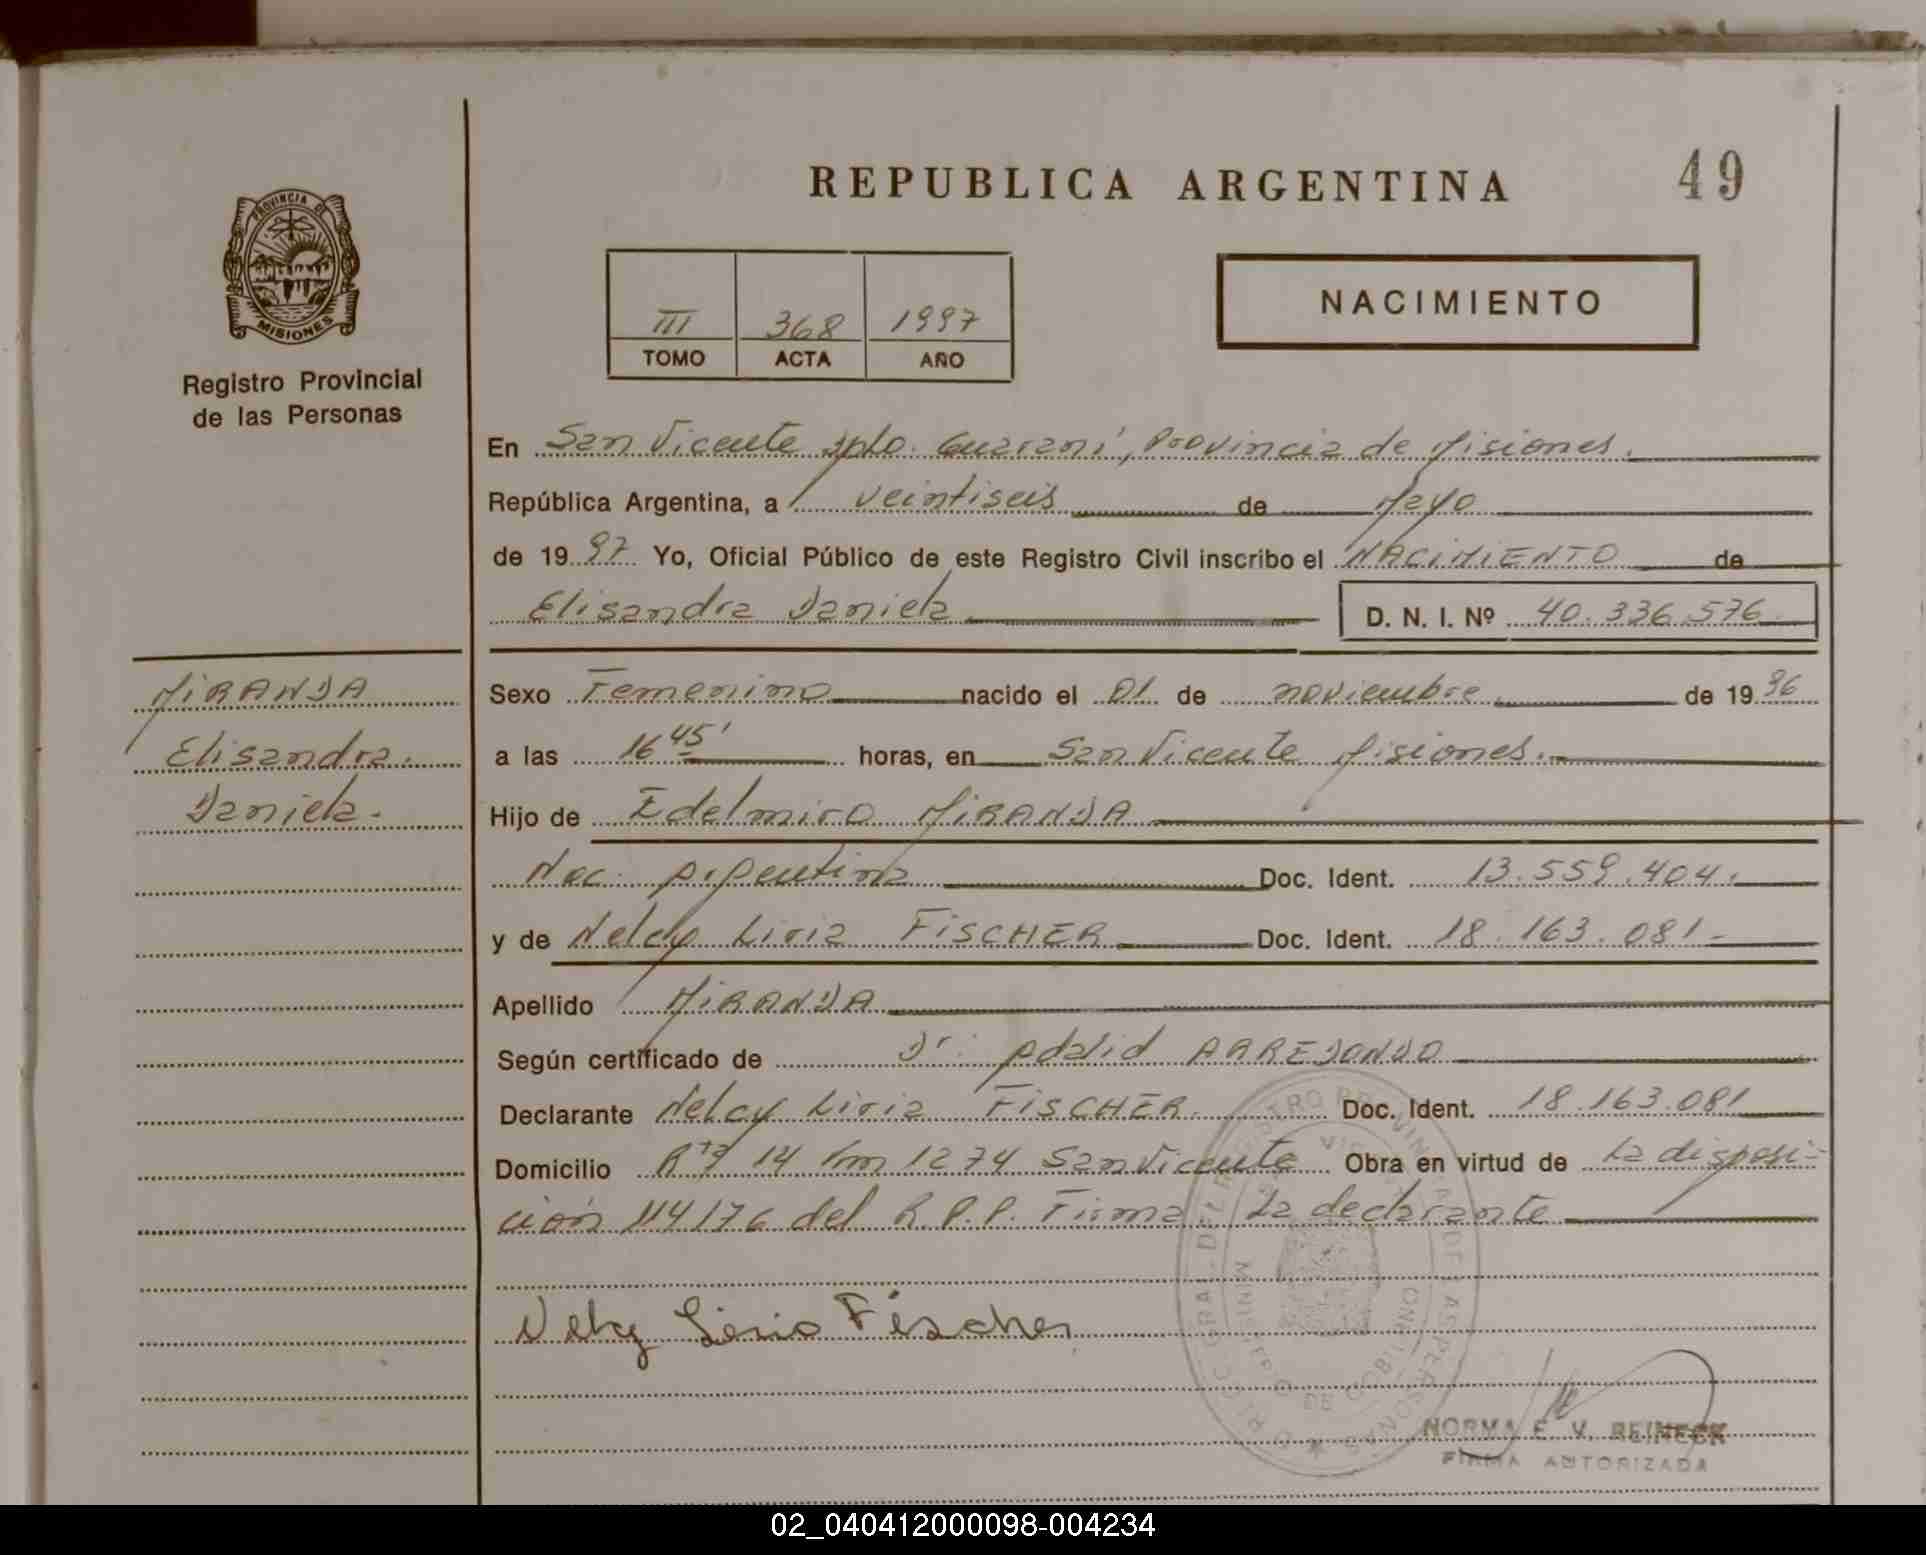 REPUBLICA ARGENTINA
49
PROVINCIA DE
MISIONES
Registro Provincial
de las Personas
III 368 1997
TOMO ACTA AÑO
NACIMIENTO
En San Vicente Dpto. Guaraní, Provincia de Misiones.
República Argentina, a veintiseis de Mayo
de 1997 Yo, Oficial Público de este Registro Civil inscribo el NACIMIENTO de
Elisandra Daniela D. N. I. Nº 40.336.576
MIRANDA
Elisandra
Daniela.
Sexo Femenino nacido el 01 de noviembre de 1996
a las 16 45' horas, en San Vicente Misiones.
Hijo de Edelmiro MIRANDA
Nac. Argentina Doc. Ident. 13.559.404.
y de Nelcy Liria FISCHER Doc. Ident. 18.163.081
Apellido MIRANDA
Según certificado de Dr. Adalid ARREDONDO
Declarante Nelcy Liria FISCHER Doc. Ident. 18.163.081
Domicilio Rta 14 Km 1274 San Vicente Obra en virtud de la disposi-
ción 114/76 del R.P.P. Firma la declarante
Nelcy Liria Fischer
NORMA E. V. REINECK
FIRMA AUTORIZADA
02_040412000098-004234